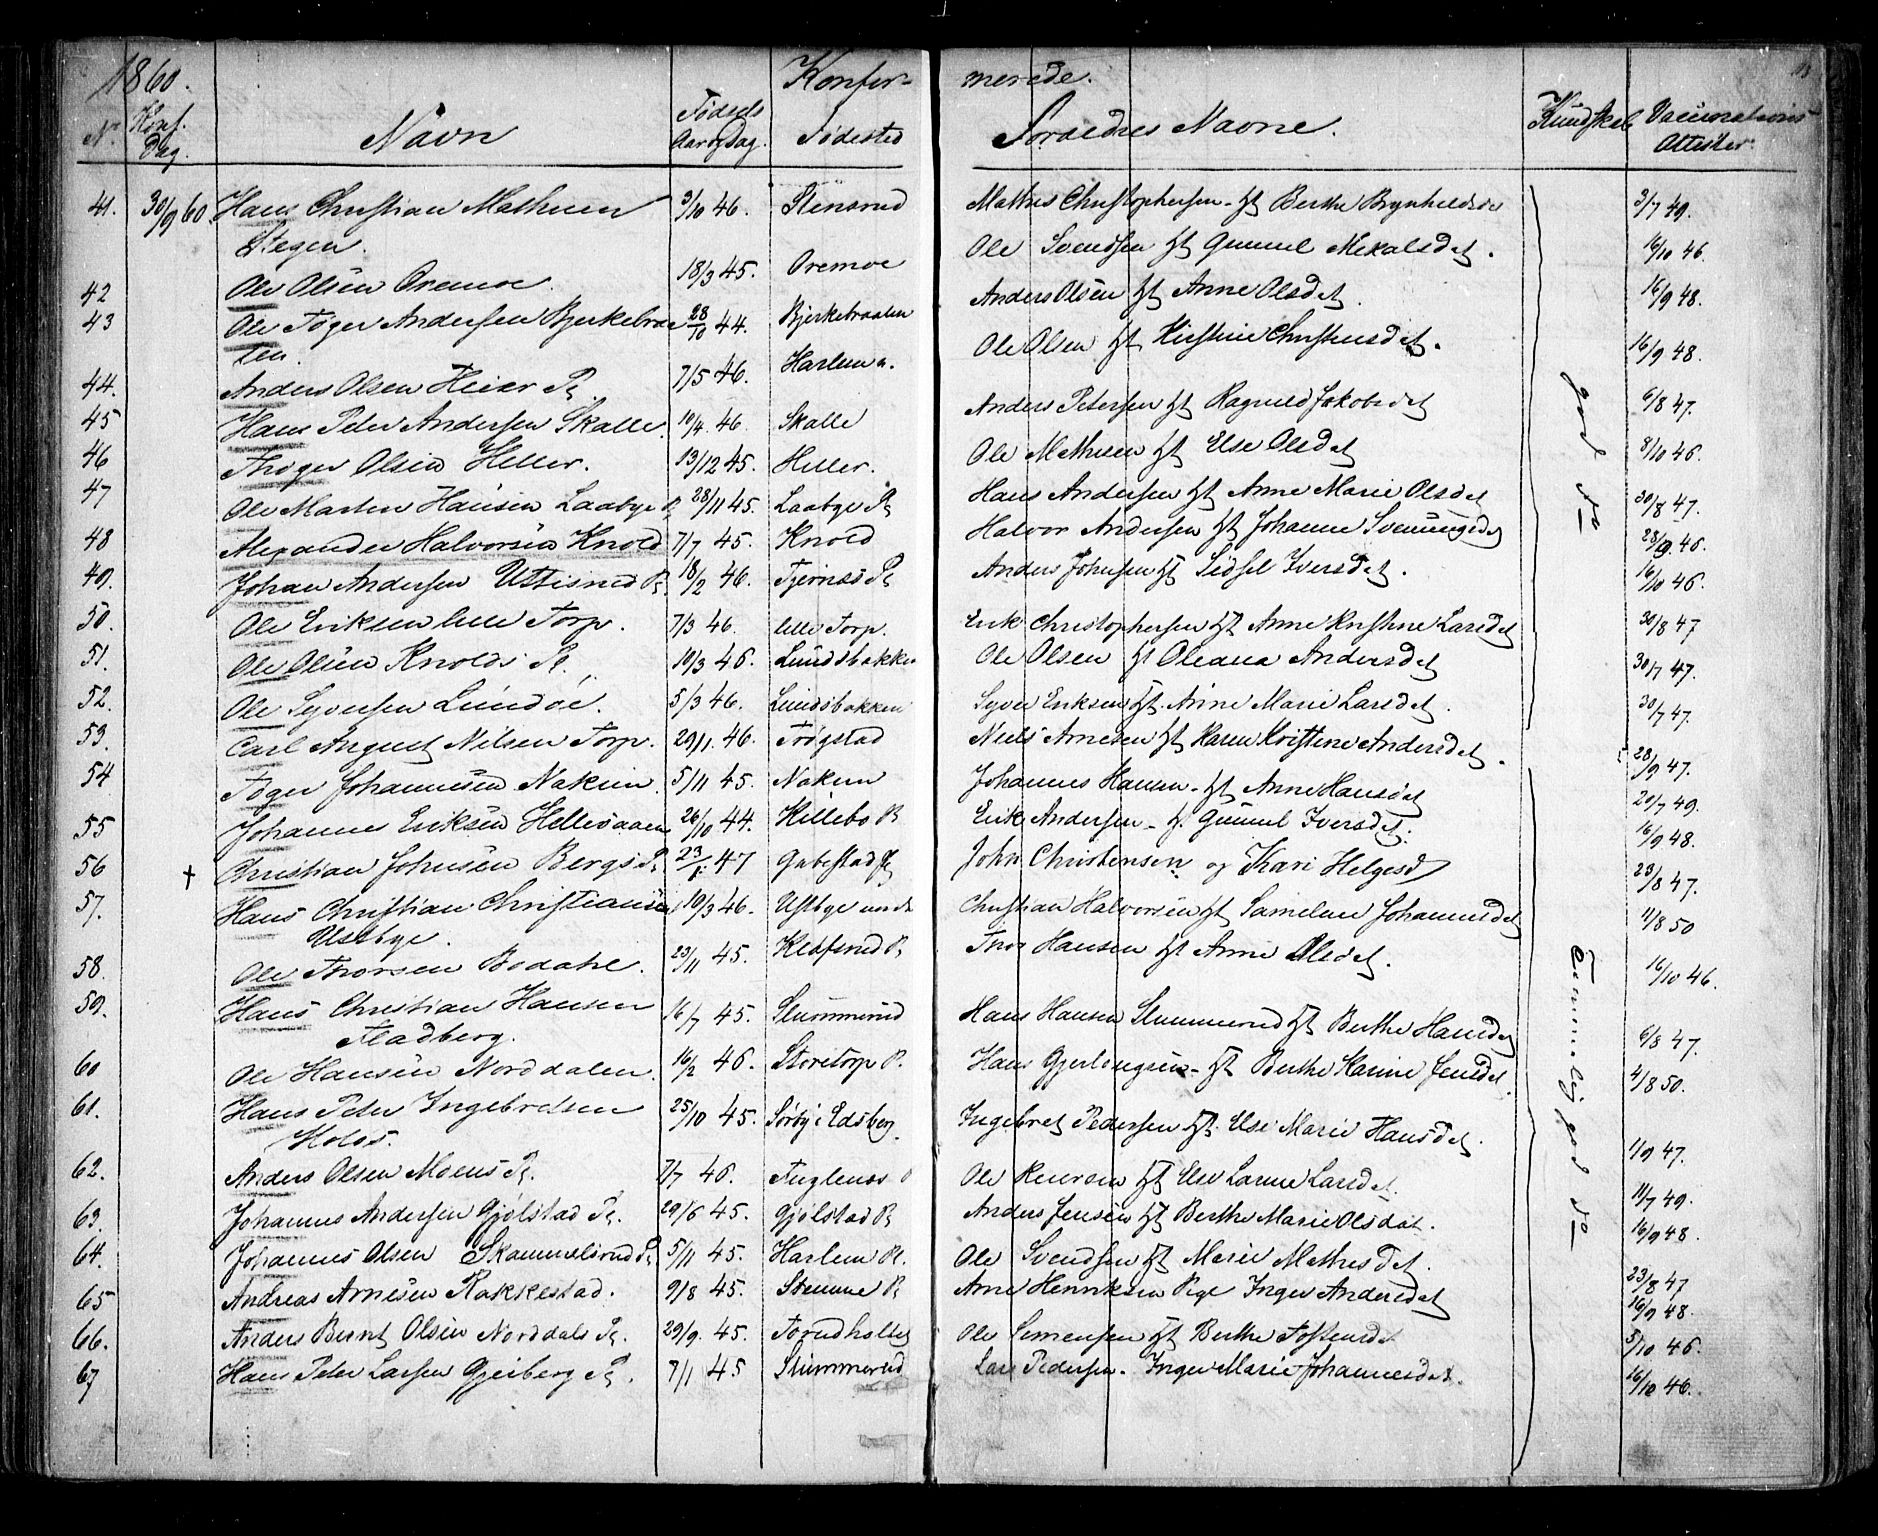 1860. Konfir- merede.
No Konf. Dag. Navn Fødsels Aar og Dag. Fødested Foraeldres Navne. Kundskab Vaccinations Attester.
41. 30/9 60. Hans Christian Mathisen 3/10 46. Stensrud Mathis Christophersen - Hst Berthe Brynhildsdt 3/7 49.
Stegen.
42 Ole Olsen Oremoe. 18/3 45. Oremoe Ole Svendsen Hst Gunnil Mikalsdet. 16/10 46.
43 Ole Tøger Andersen Bjerkebraa- 28/10 44. Bjerkebraaten Anders Olsen Hst Anne Olsdet. 16/9 48.
ten.
44. Anders Olsen Heier Pl. 7/5 46. Harlem u. Ole Olsen Hst Kirstine Christensdet. 16/9 48.
45 Hans Peter Andersen Skalle. 10/4 46. Skalle Anders Petersen Hst Ragnild Jakobsdet 6/8 47.
46 Thøger Olsen Heller. 13/12 45. Heller. Ole Mathisen Hst Else Olsdet 8/10 46.
47 Ole Marten Hansen Laabye Pl 28/11 45. Laabye Pl Hans Andersen Hst Anne Marie Olsdet 30/8 47.
48 Alexander Halvorsen Knold 7/7 45. Knold Halvor Andersen Hst Johanne Svenningsdet 28/9 46.
49. Johan Andersen Ultisrud Pl. 18/2 46. Tjernæs Pl Anders Johnsen Hst Sidsel Iversdet. 16/10 46
50. Ole Eriksen lille Torp. 7/3 46. lille Torp. Erik Christophersen Hst Anne Kristine Larsdet 30/8 47
51. Ole Olsen Knolds Pl. 10/3 46. Lundsbakken Ole Olsen Hst Oleana Andersdet 30/7 47.
52. Ole Syversen Lundøe. 5/3 46. Lundsbakken Syver Eriksen Hst. Anne Marie Larsdet. 30/7 47.
53. Carl August Nilsen Torp. 29/1. 46. Trøgstad Niels Arnesen Hst Karen Kristine Andersdet. 28/9 47.
54 Tøger Johannesen Nakim. 5/11 45. Nakim Johannes Hansen - Hst Anne Hansdet 20/7 49.
55 Johannes Eriksen Hellesaaen 26/10 44. Killebo Pl Erik Andersen - H. Gunnil Iversdet. 16/9 48.
56 † Christian Johnsen Bergs Pl 23/1. 47 Gubestad Pl John Christensen og Kari Helgesd 23/8 47.
57. Hans Christian Christiansen 10/3 46. Ustbye under Christian Halvorsen Hst Sameline Johannesdet 11/8 50
Ustbye.
58. Ole Thorsen Bodahl. 23/11 45. Kedsrud Pl Thor Hansen Hst Anne Olsdet. 16/10 46.
59. Hans Christian Hansen 16/7 45. Slummerud Hans Hansen Slummerud Hst Berthe Hansdet 6/8 47.
Fladberg.
60 Ole Hansen Norddalen. 16/2 46. Storetorp Pl. Hans Gjerløugsen - Hst Berthe Karine Jensdet 4/8 50.
61. Hans Peter Ingebretsen 25/10 45. Sørby i Edsberg Ingebret Pedersen Hst. Else Marie Hansdet. 1/9 47.
Holøs.
62. Anders Olsen Moens Pl. 7/7 46. Fuglenæs Ole Reiersen Hst Else Larine Larsdet. 11/7 49.
63. Johannes Andersen Gjølstad Pl. 29/6 45. Gjølstad Pl Anders Jensen Hst Berthe Marie Olsdat. 16/9 48.
64. Johannes Olsen Skammelsrud Pl 5/11 45. Harlem Pl. Ole Svendsen Hst Marie Mathisdet. 23/8 47
65 Andreas Arnesen Rakkestad. 9/8 45. Stemme Pl Arne Henriksen Pige Inger Andersdet 16/9 48.
66. Anders Bernt Olsen Norddals Pl. 29/9. 45. Torudholtet Ole Simensen Hst Berthe Tostensdet 5/10 46.
67 Hans Peter Larsen Gjeiberg Pl. 7/1 45 Slummerud Lars Pedersen. Inger Marie Johannesdet. 16/10 46.
god
do
Temmelig god
do